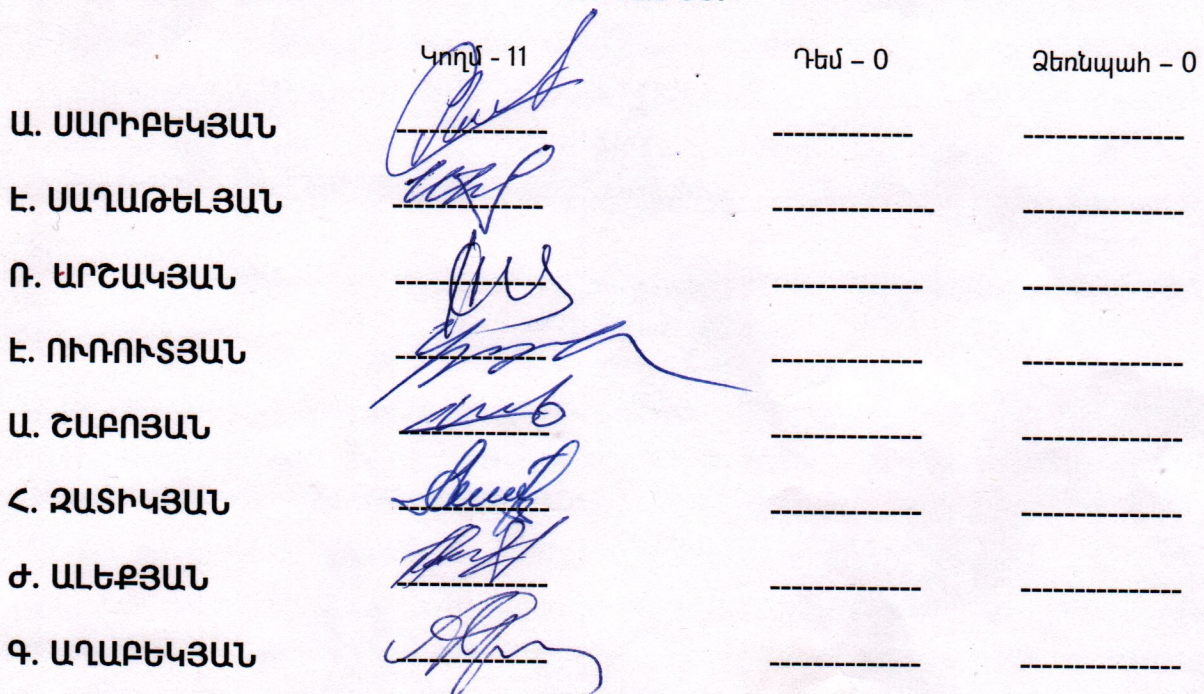 Կողմ - 11 Դեմ – 0 Ձեռնպահ – 0
Ա. ՍԱՐԻԲԵԿՅԱՆ
Է. ՍԱՂԱԹԵԼՅԱՆ
Ռ. ԱՐՇԱԿՅԱՆ
Է. ՈՒՌՈՒՏՅԱՆ
Ա. ՇԱԲՈՅԱՆ
Հ. ԶԱՏԻԿՅԱՆ
Ժ. ԱԼԵՔՅԱՆ
Գ. ԱՂԱԲԵԿՅԱՆ